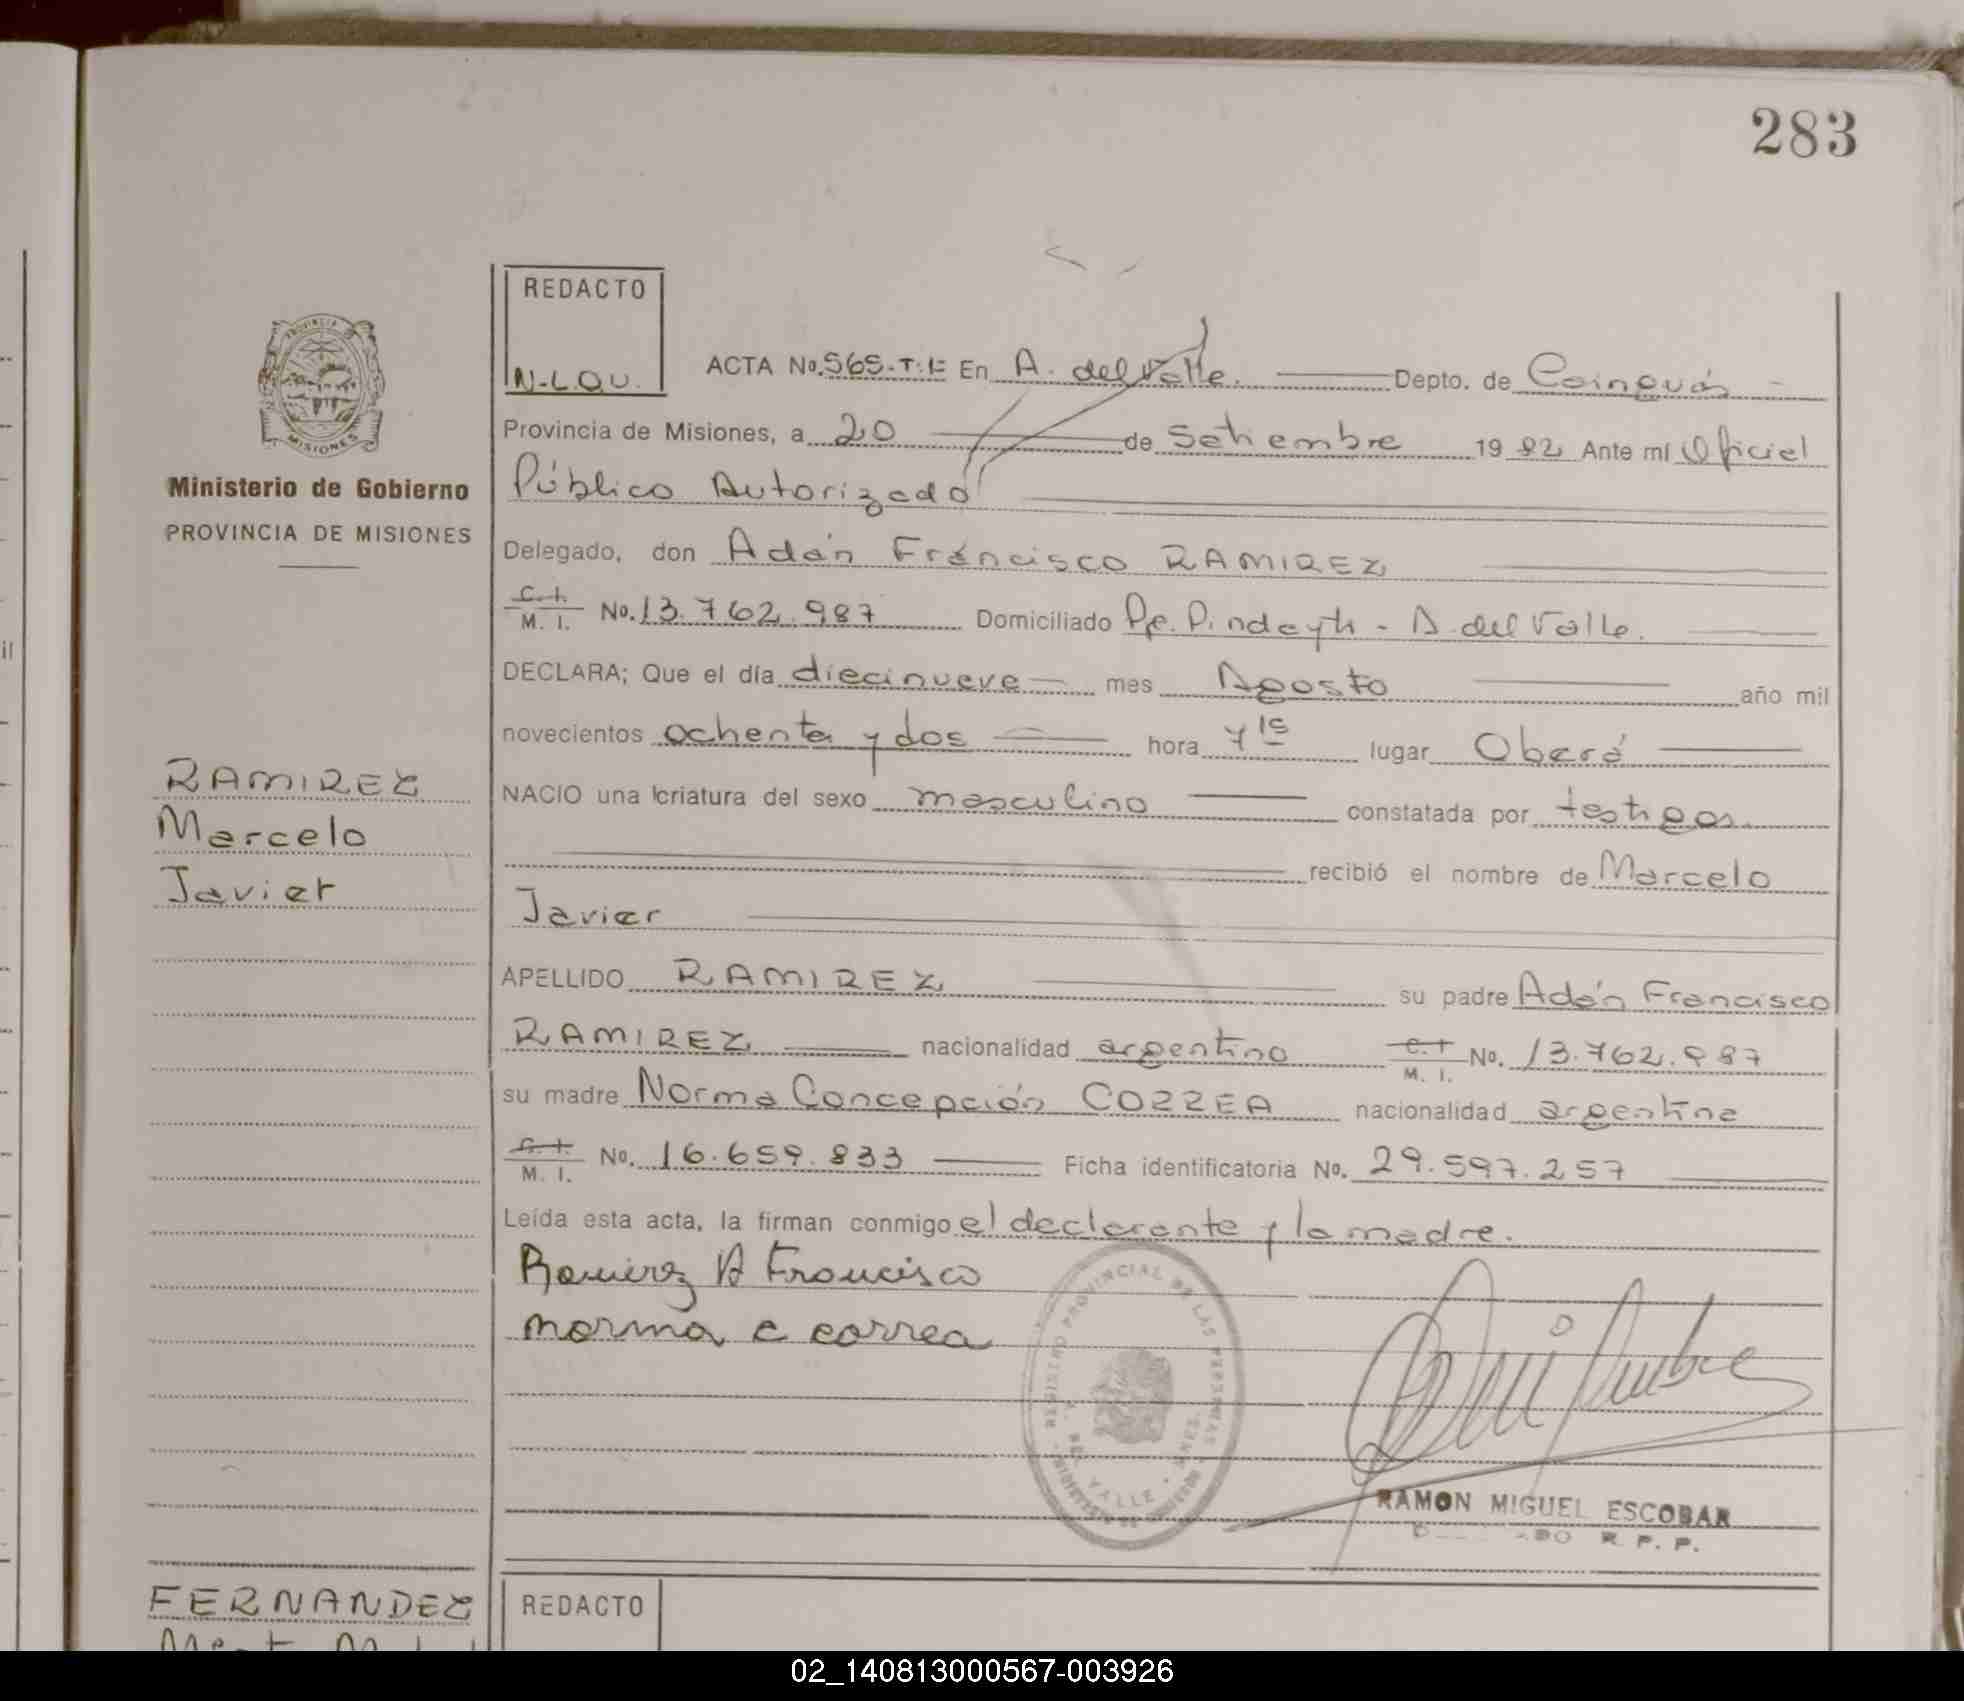 283
REDACTO
N-L.O.U.
ACTA No. 565-T:I: En A. del Valle. Depto. de Cainguás
Provincia de Misiones, a 20 de Setiembre 19 82 Ante mí Oficial
Público Autorizado
Delegado, don Adán Francisco RAMIREZ
C.I. M. I. No. 13.762.987 Domiciliado Pje. Pindayti - A. del Valle.
DECLARA; Que el día diecinueve mes Agosto año mil
novecientos ochenta y dos hora 7 15 lugar Oberá
NACIO una criatura del sexo masculino constatada por testigos
recibió el nombre de Marcelo
Javier
APELLIDO RAMIREZ su padre Adán Francisco
RAMIREZ nacionalidad argentino C.I. M. I. No. 13.762.987
su madre Norma Concepción CORREA nacionalidad argentina
C.I. M. I. No. 16.659.833 Ficha identificatoria No. 29.597.257
Leída esta acta, la firman conmigo el declarante y la madre.
Ramirez A Francisco
norma c correa
REGISTRO PROVINCIAL DE LAS PERSONAS
A. DEL VALLE
RAMON MIGUEL ESCOBAR
R. P. P.
PROVINCIA DE
MISIONES
Ministerio de Gobierno
PROVINCIA DE MISIONES
RAMIREZ
Marcelo
Javier
FERNANDEZ
REDACTO
il
02_140813000567-003926